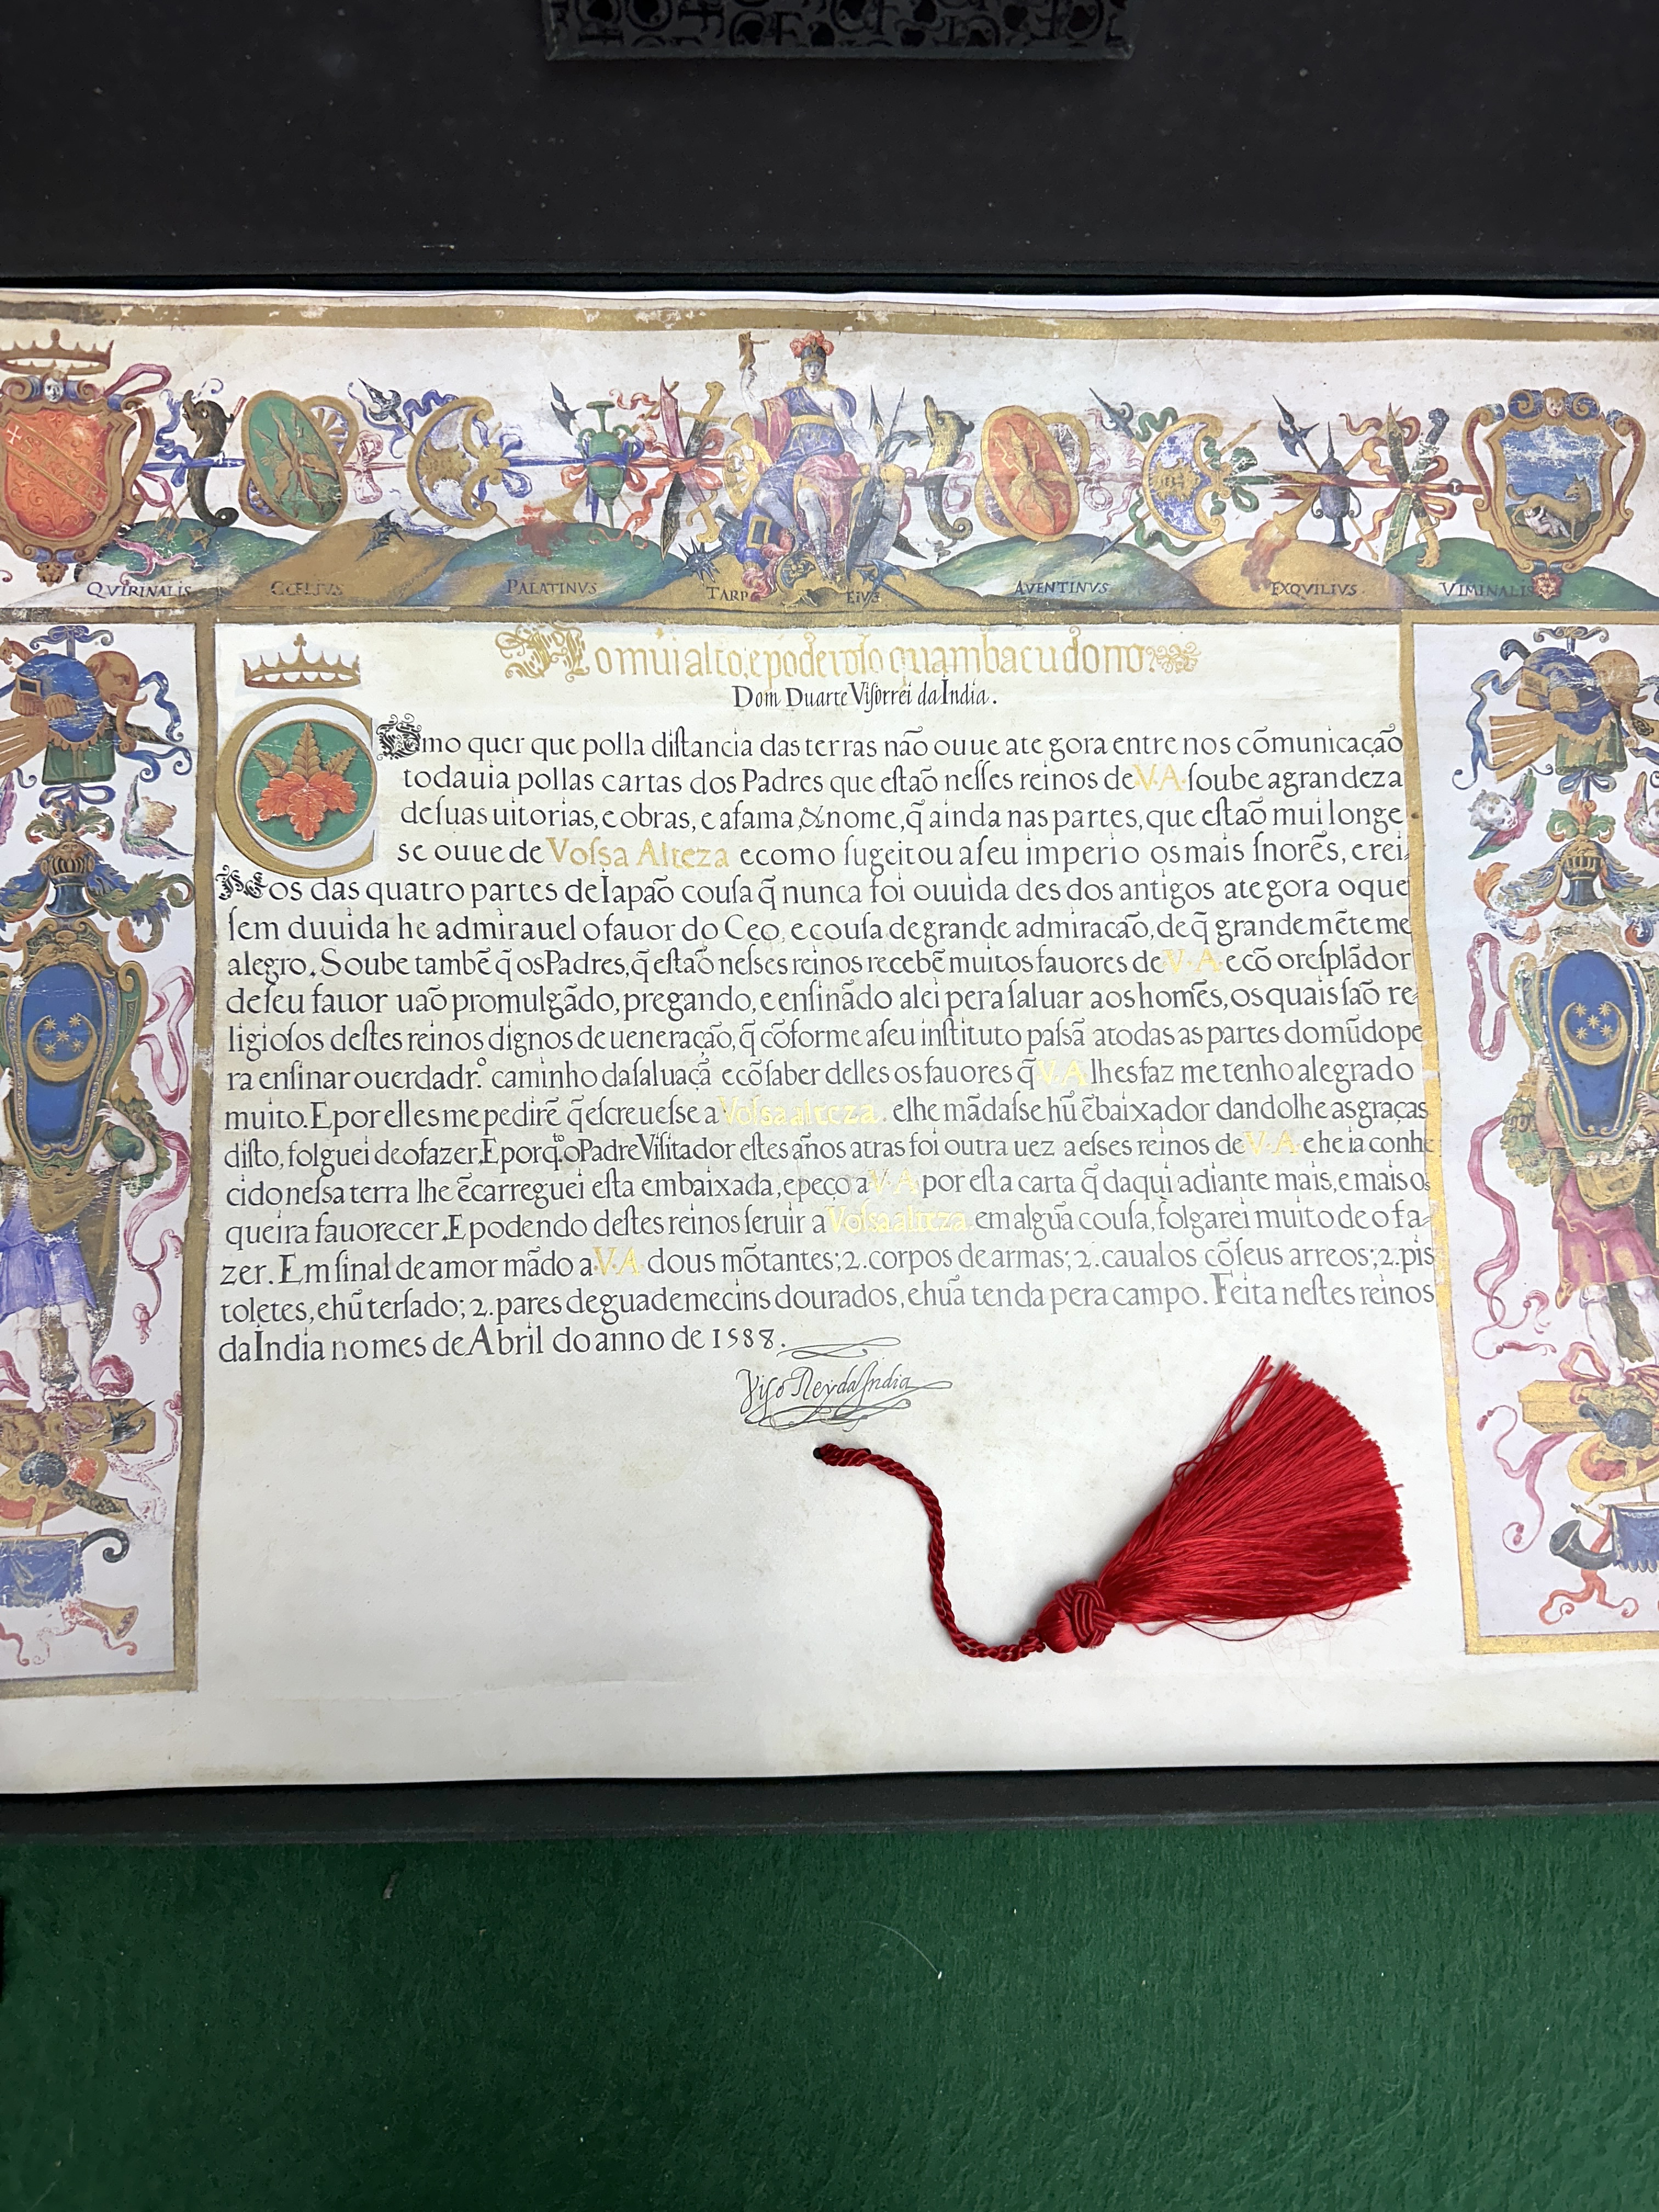 QVIRINALIS
CŒLIVS
PALATINVS
TARPEIVS
AVENTINVS
EXQVILIVS
VIMINALIS
Ao mui alto, e poderoso quambacudono
Dom Duarte Visorrei da India.
Como quer que polla distancia das terras não ouue ate gora entre nos cõmunicação
todauia pollas cartas dos Padres que estaõ nesses reinos de V.A. soube a grandeza
de suas uitorias, e obras, e a fama, & nome, q̃ ainda nas partes, que estaõ mui longe
se ouue de Vossa Alteza e como sugeitou a seu imperio os mais snorẽs, e rei-
nos das quatro partes de Iapaõ cousa q̃ nunca foi ouuida des dos antigos ate gora o que
sem duuida he admirauel o fauor do Ceo, e cousa de grande admiracaõ, de q̃ grandemẽte me
alegro. Soube tambẽ q̃ os Padres, q̃ estaõ nesses reinos recebẽ muitos fauores de V.A. e cõ o resplãdor
de seu fauor uaõ promulgãdo, pregando, e ensinãdo a lei pera saluar aos homẽs, os quais saõ re-
ligiosos destes reinos dignos de ueneraçaõ, q̃ cõforme a seu instituto passã a todas as partes do mũdo pe
ra ensinar o uerdadr.º caminho da saluaçã e cõ saber delles os fauores q̃ V.A. lhes faz me tenho alegrado
muito. E por elles me pedirẽ q̃ escreuesse a Vossa alteza. e lhe mãdasse hũ ẽbaixador dandolhe as graças
disto, folguei de o fazer. E porq̃to o Padre Visitador estes años atras foi outra uez a esses reinos de V.A. e he ia conhe
cido nessa terra lhe ẽcarreguei esta embaixada, e peço a V.A. por esta carta q̃ daqui adiante mais, e mais os
queira fauorecer. E podendo destes reinos seruir a Vossa alteza. em algũa cousa, folgarei muito de o fa-
zer. Em sinal de amor mãdo a V.A. dous mõtantes; 2. corpos de armas; 2. caualos cõ seus arreos; 2. pis
toletes, e hũ tersado; 2. pares de guademecins dourados, e hũa tenda pera campo. Feita nestes reinos
da India no mes de Abril do anno de 1588.
Viso Rey da India